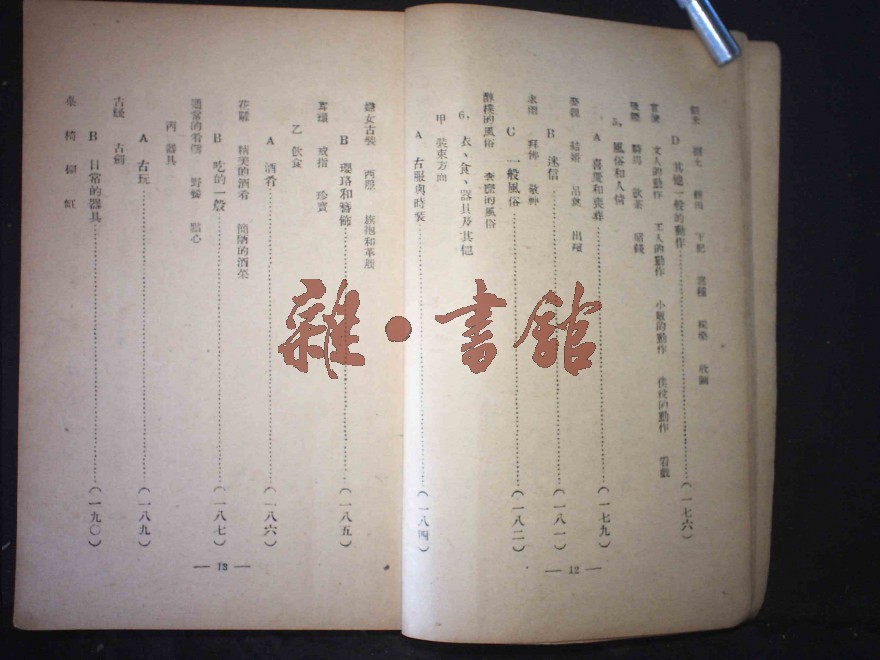 D 其他一般的動作……(一七六)
文人的動作 工人的動作 小販的動作 看戲
5、風俗和人情
A 喜慶和喪葬……(一七九)
結婚 出殯
B 迷信……(一八一)
求雨 拜佛 敬神
C 一般風俗……(一八二)
醇樸的風俗 奢靡的風俗
6、衣、食、器具及其他
甲 裝束方面
A 古服與時裝……(一八四)
— 12 —
婦女古裝 西服 旗袍和革履
B 瓔珞和簪飾……(一八五)
耳環 戒指 珍寶
乙 飲食
A 酒肴……(一八六)
花雕 精美的酒肴 簡陋的酒菜
B 吃的一般……(一八七)
通常的肴饌 野餐 點心
丙 器具
A 古玩……(一八九)
古瓶 古劍
B 日常的器具……(一九〇)
桌 椅 櫃 缸
— 13 —
雜·書館